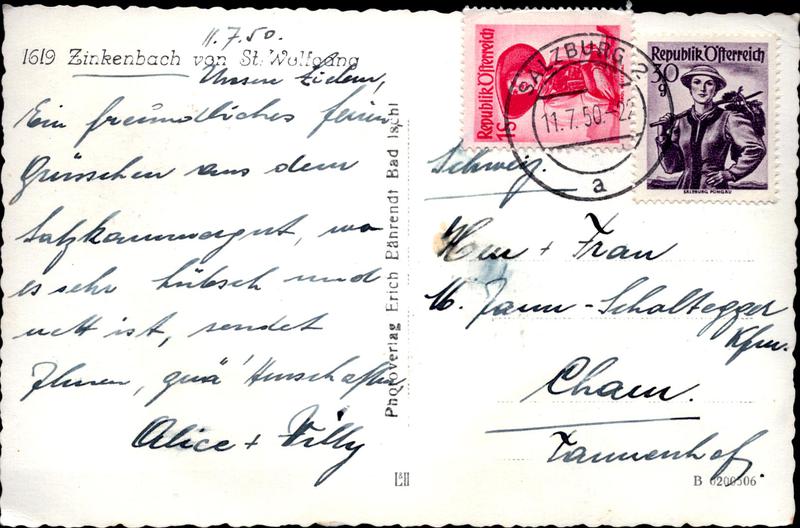 11.7.50.
1619 Zinkenbach von St. Wolfgang
Unsere
Ein freundliches ferien
Grüsschen aus dem
Salzkammergut, wo
es sehr hübsch und
nett ist, sendet
Ihnen,
Alice + Willy
Photoverlag Erich Bährendt Bad Ischl
Republik Österreich
SALZBURG 2
11.7.50.-22
a
Republik Österreich
30
g
SALZBURG PONGAU
Schweiz.
Herr + Frau
Schaltegger
Kfm.
Cham.
Tannenhof.
B 0200506